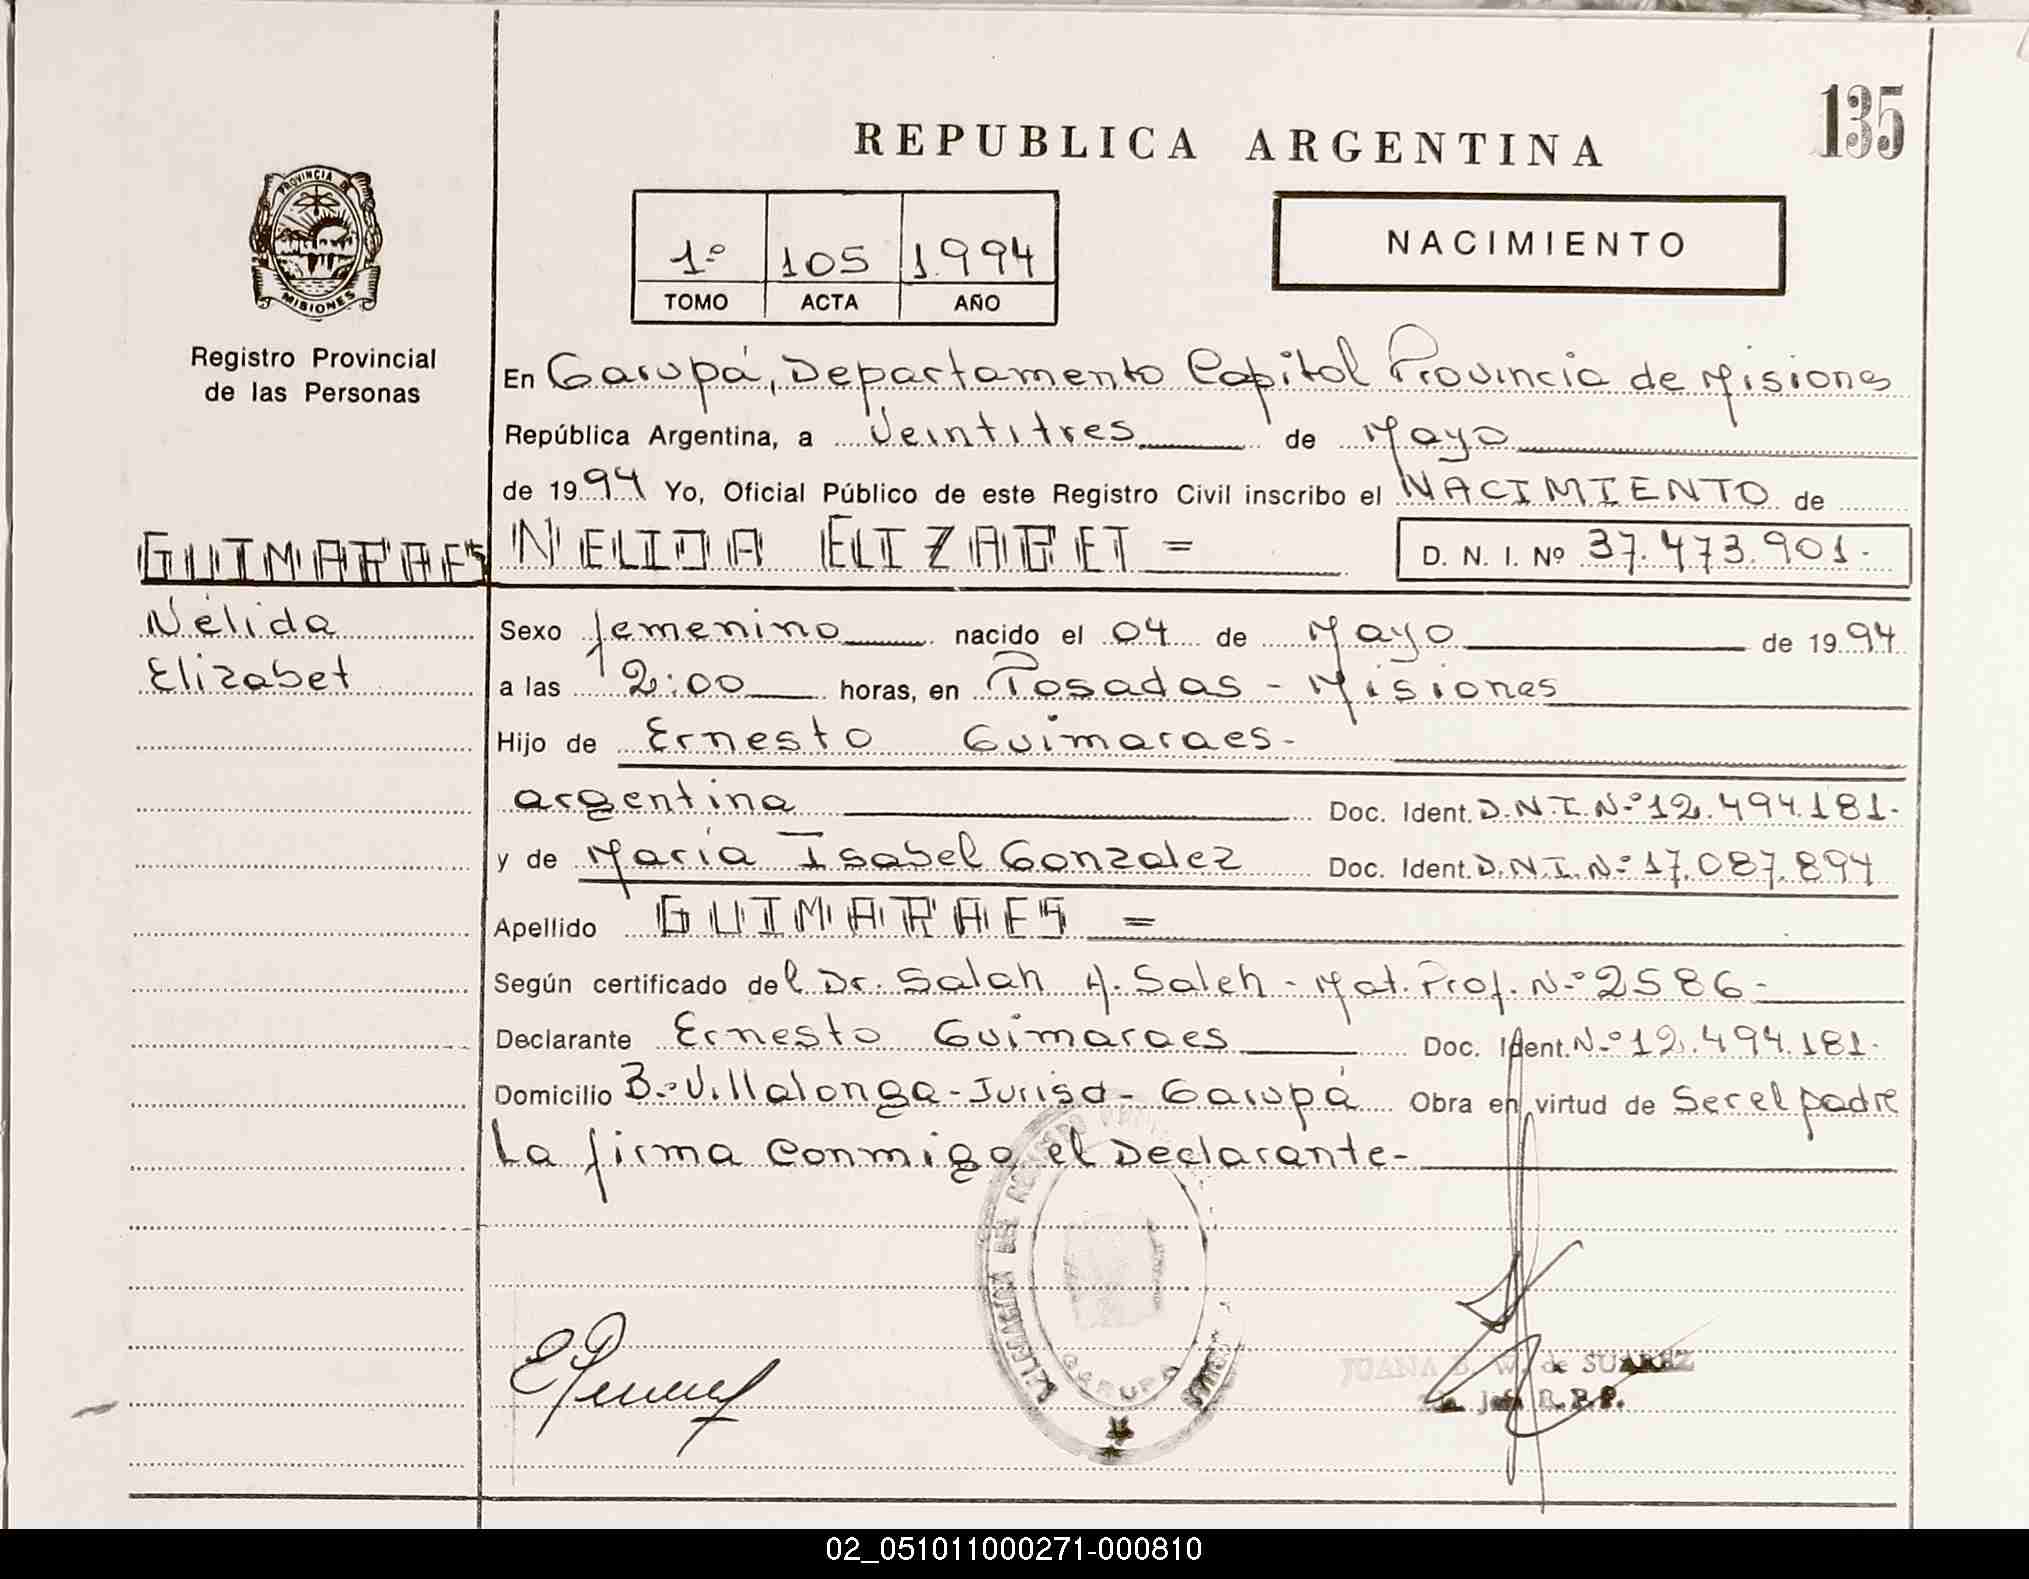 135
REPUBLICA ARGENTINA
PROVINCIA DE
MISIONES
Registro Provincial
de las Personas
1º 105 1994
TOMO ACTA AÑO
NACIMIENTO
En Garupá, Departamento Capital Provincia de Misiones
República Argentina, a Veintitres de Mayo
de 1994 Yo, Oficial Público de este Registro Civil inscribo el NACIMIENTO de
GUIMARAES NELIDA ELIZABET = D. N. I. Nº 37.473.901.
Nélida
Elizabet
Sexo femenino nacido el 04 de Mayo de 1994
a las 12:00 horas, en Posadas - Misiones
Hijo de Ernesto Guimaraes-
argentina Doc. Ident. D.N.I.Nº 12.494.181-
y de María Isabel Gonzalez Doc. Ident. D.N.I.Nº 17.087.894
Apellido GUIMARAES =
Según certificado del Dr. Salah A. Saleh - Mat. Prof. Nº 2586-
Declarante Ernesto Guimaraes Doc. Ident. Nº 12.494.181-
Domicilio B.º Villalonga - Jurisd - Garupá Obra en virtud de Ser el padre
La firma conmigo el Declarante-
DELEGACION DEL REGISTRO
GARUPA
JUANA B. W. de SUAREZ
Jefa R.P.P.
02_051011000271-000810